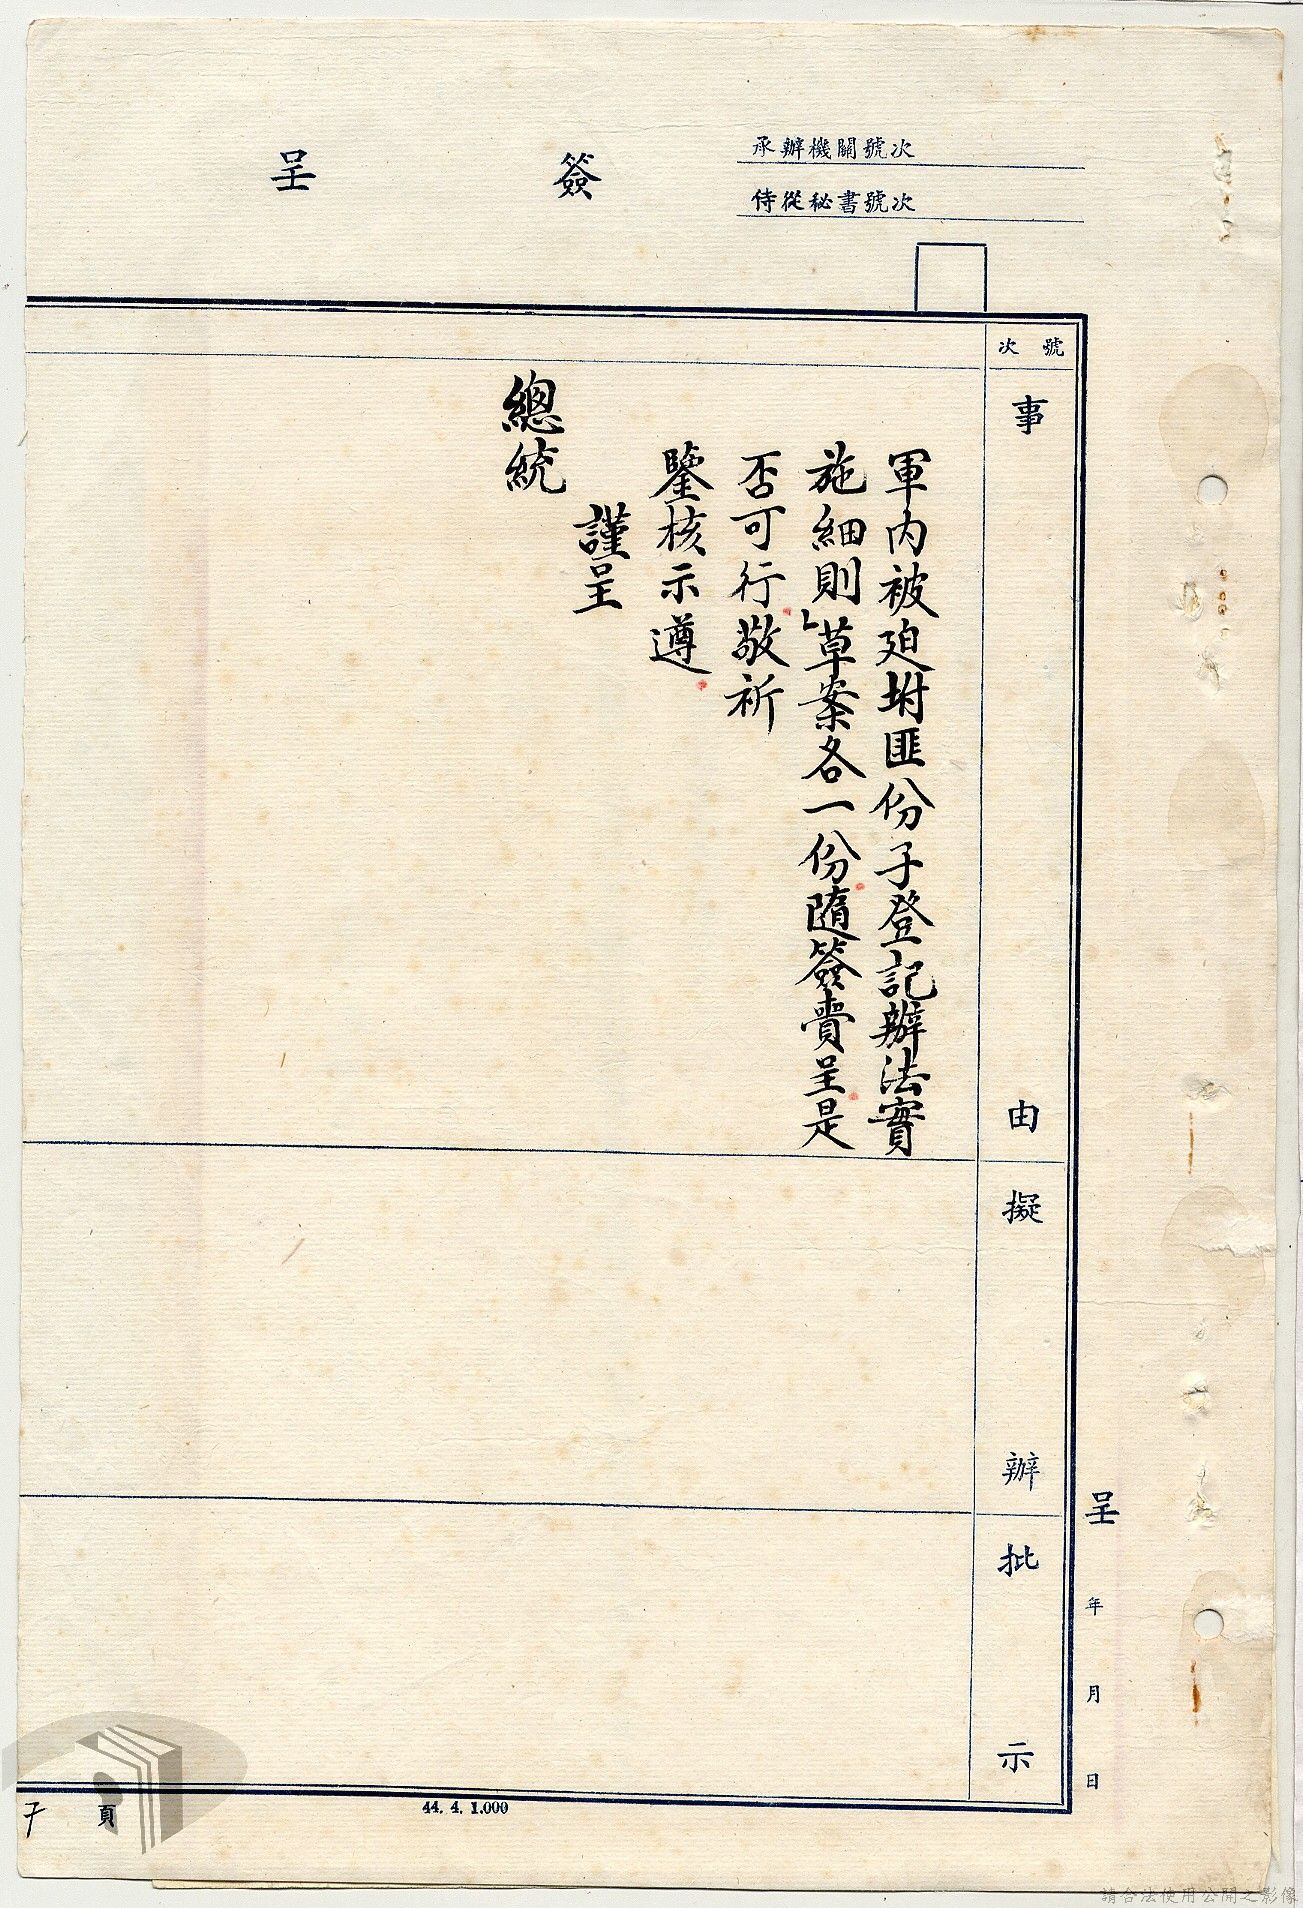 簽呈
承辦機關號次
侍從秘書號次
號次
事由
軍内被廹坿匪份子登記辦法實
施細則」草案各一份隨簽賫呈是
否可行敬祈
鑒核示遵
謹呈
總統
擬辦
批示
呈 年 月 日
44. 4. 1.000
頁
請合法使用公開之影像